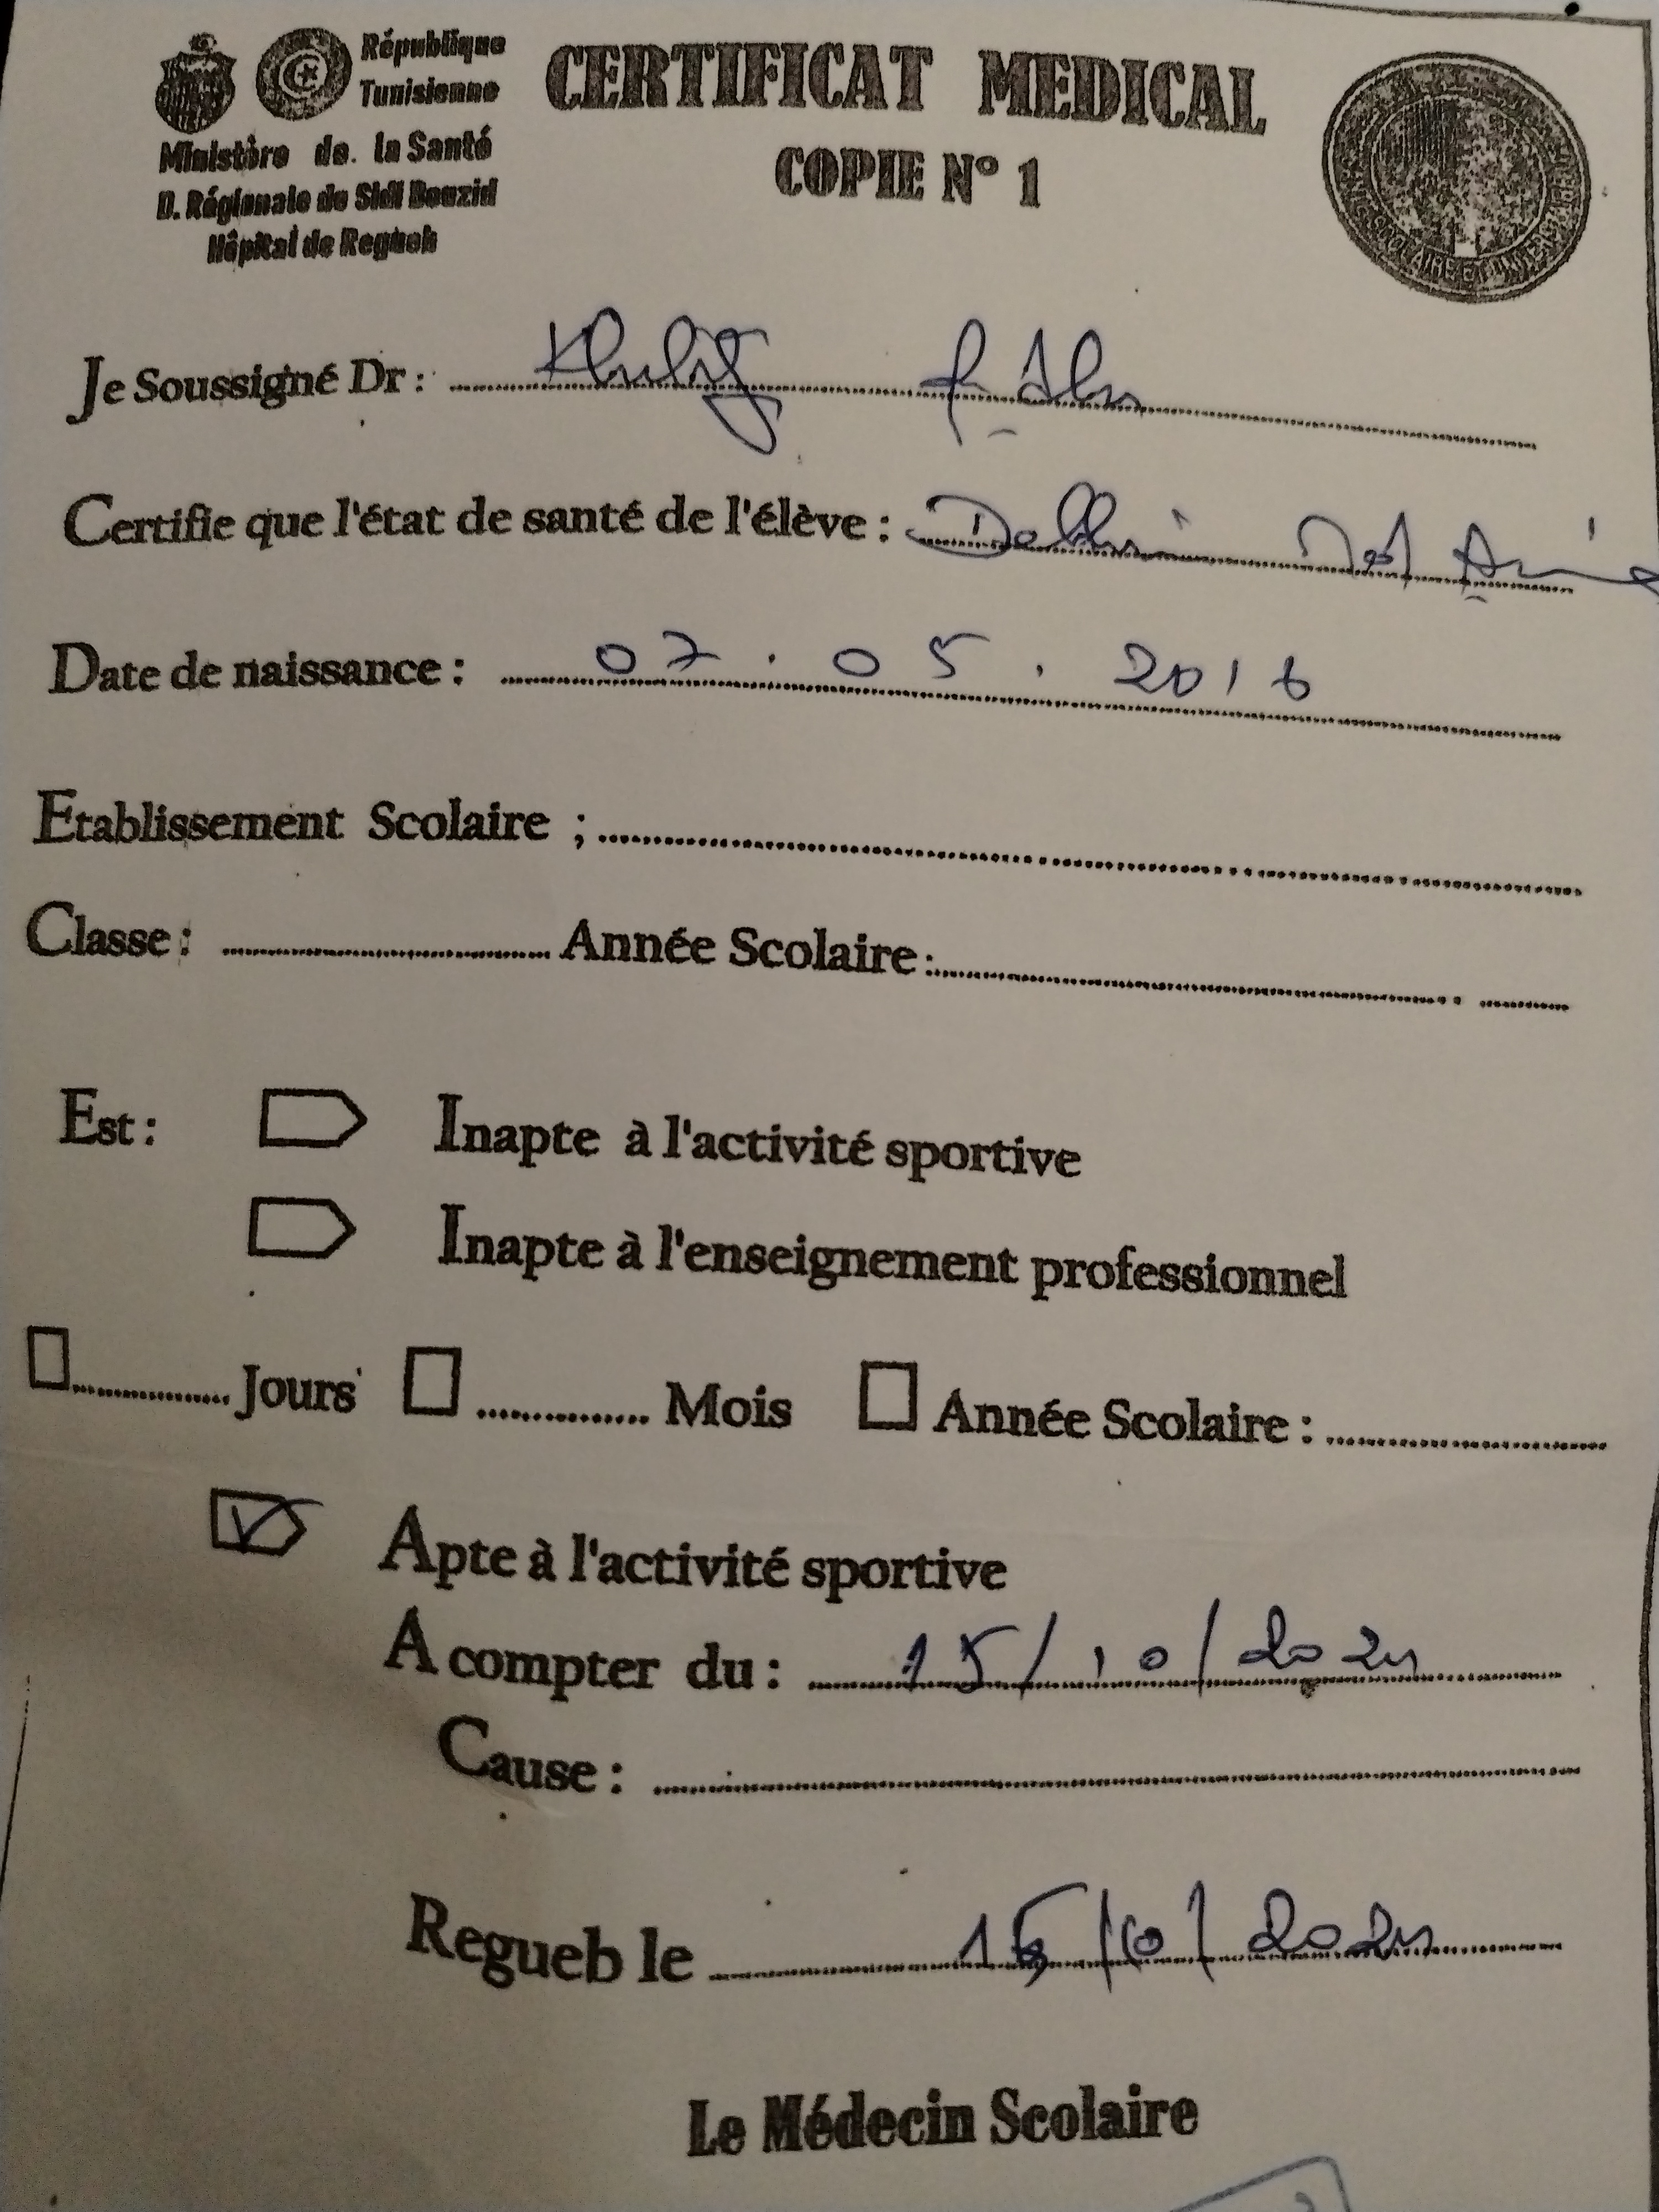 République
Tunisienne
Ministère de. la Santé
D. Régionale de Sidi Bouzid
Hôpital de Regueb
CERTIFICAT MEDICAL
COPIE N° 1
SCOLAIRE ET UNIVERSITAIRE
Je Soussigné Dr :
Certifie que l'état de santé de l'élève :
Date de naissance : 07 . 05 . 2016
Etablissement Scolaire ;
Classe : Année Scolaire :
Est : Inapte à l'activité sportive
Inapte à l'enseignement professionnel
Jours Mois Année Scolaire :
Apte à l'activité sportive
A compter du : 15/10/2024
Cause :
Regueb le 15/10/2024
Le Médecin Scolaire